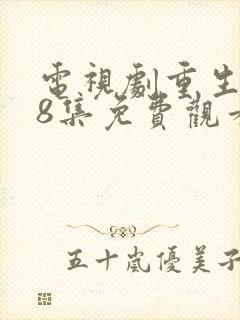 電視劇重生
8集免費觀看
五十嵐優美子